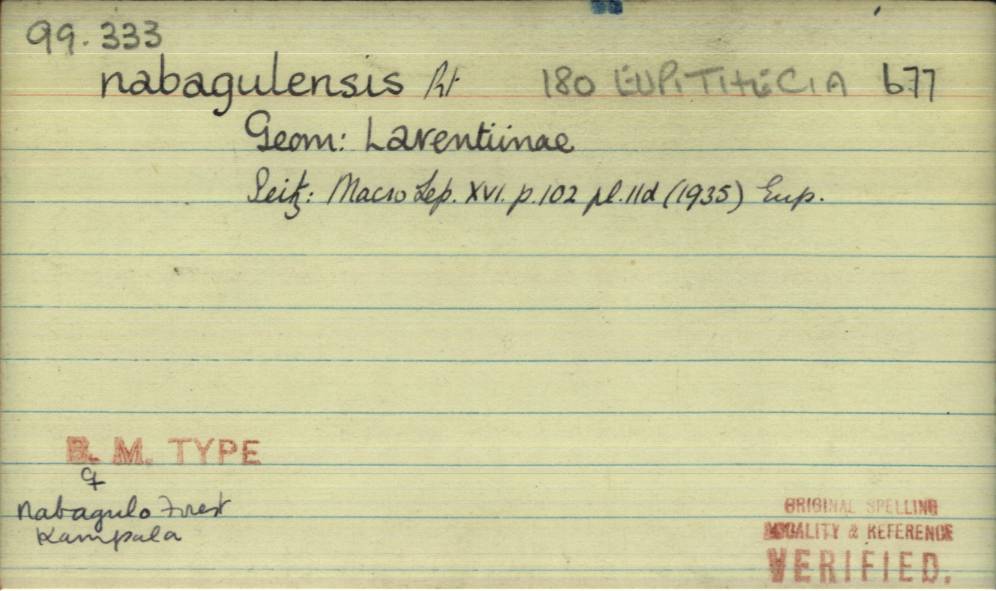 99.333
nabagulensis Prt 180 EUPITHECIA b77
Geom: Larentiinae
Seitz: Macro Lep. XVI. p.102 pl.11d (1935) Eup.
B. M. TYPE
♀
Nabagulo Forest
Kampala
ORIGINAL SPELLING
LOCALITY & REFERENCE
VERIFIED.